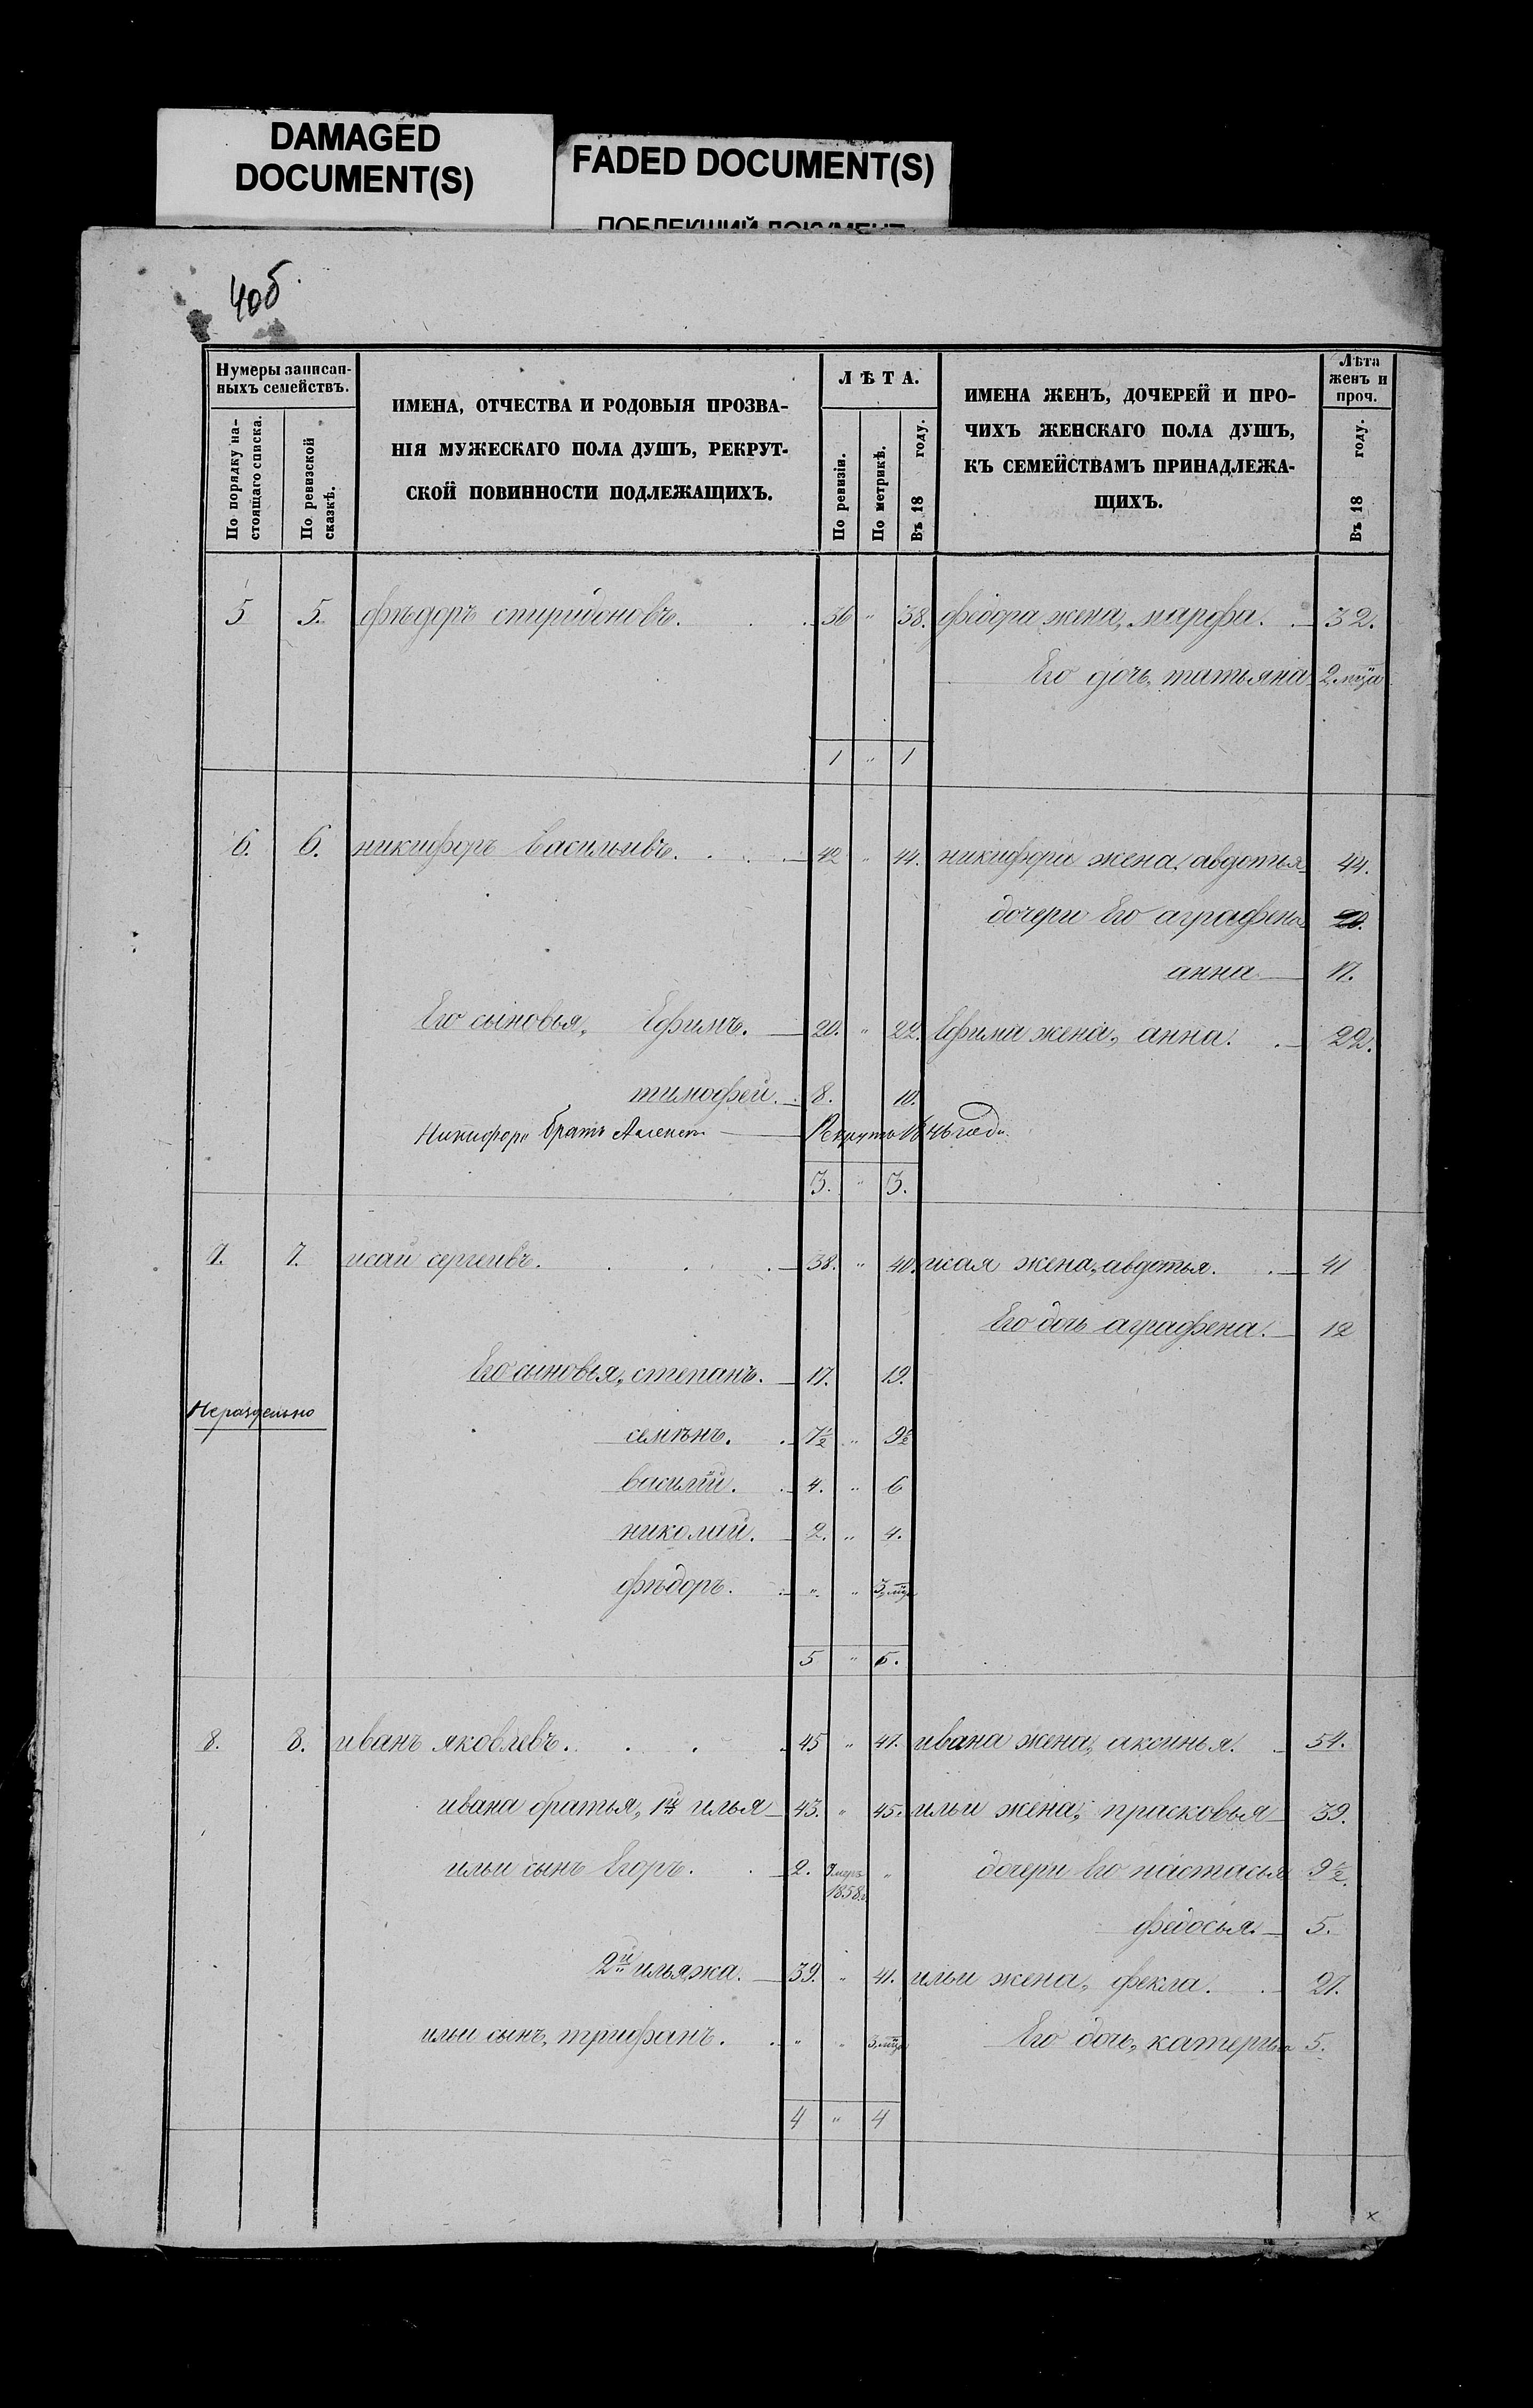 DAMAGED
DOCUMENT(S)
FADED DOCUMENT(S)
ПОБЛЕКШИЙ ДОКУМЕНТ
40б
Нумеры записан-
ныхъ семействъ.
По порядку на-
стоящаго списка.
По ревизской
сказкѣ.
ИМЕНА, ОТЧЕСТВА И РОДОВЫЯ ПРОЗВА-
НІЯ МУЖЕСКАГО ПОЛА ДУШЪ, РЕКРУТ-
СКОЙ ПОВИННОСТИ ПОДЛЕЖАЩИХЪ.
ЛѢТА.
По ревизіи.
По метрикѣ.
Въ 18 году.
ИМЕНА ЖЕНЪ, ДОЧЕРЕЙ И ПРО-
ЧИХЪ ЖЕНСКАГО ПОЛА ДУШЪ,
КЪ СЕМЕЙСТВАМЪ ПРИНАДЛЕЖА-
ЩИХЪ.
Лѣта
женъ и
проч.
Въ 18 году.
5 5. фѣдоръ спиридоновъ. 36 " 38. федора жена, марфа. 32.
Его дочь, татьяна 2 мца
1 " 1
6. 6. никифоръ Васильивъ. 42 " 44. никифора жена, авдотья 44.
дочери Его аграфена 20.
анна 17.
Его сыновья, Ефимъ. 20. " 22. Ефима жена, анна. 22.
тимофей. 8. 10.
Никифора братъ Алексей Рекрутъ 1846 года
3. " 3.
7. 7. исай сергеивъ. 38. " 40. исая жена, авдотья. 41
Его дочь аграфена. 12
Его сыновья, степанъ. 17. 19.
Нераздельно
семѣнъ. 7½ " 9½
василий. 4. " 6
николай. 2. " 4.
фѣдоръ. " " 3 мца
5 " 6.
8. 8. иванъ яковлевъ. 45 " 47. ивана жена, аксинья. 54.
ивана братья, 1й илья 43. " 45. ильи жена, прасковья 39.
ильи сынъ Егоръ. 2. "  дочери Его настасья 9½.
1858
федосья. 5.
2й ильяжа. 39. " 41. ильи жена, фекла. 27.
ильи сынъ, трифанъ. " " 3 мца Его дочь, катерина 5.
4 " 4